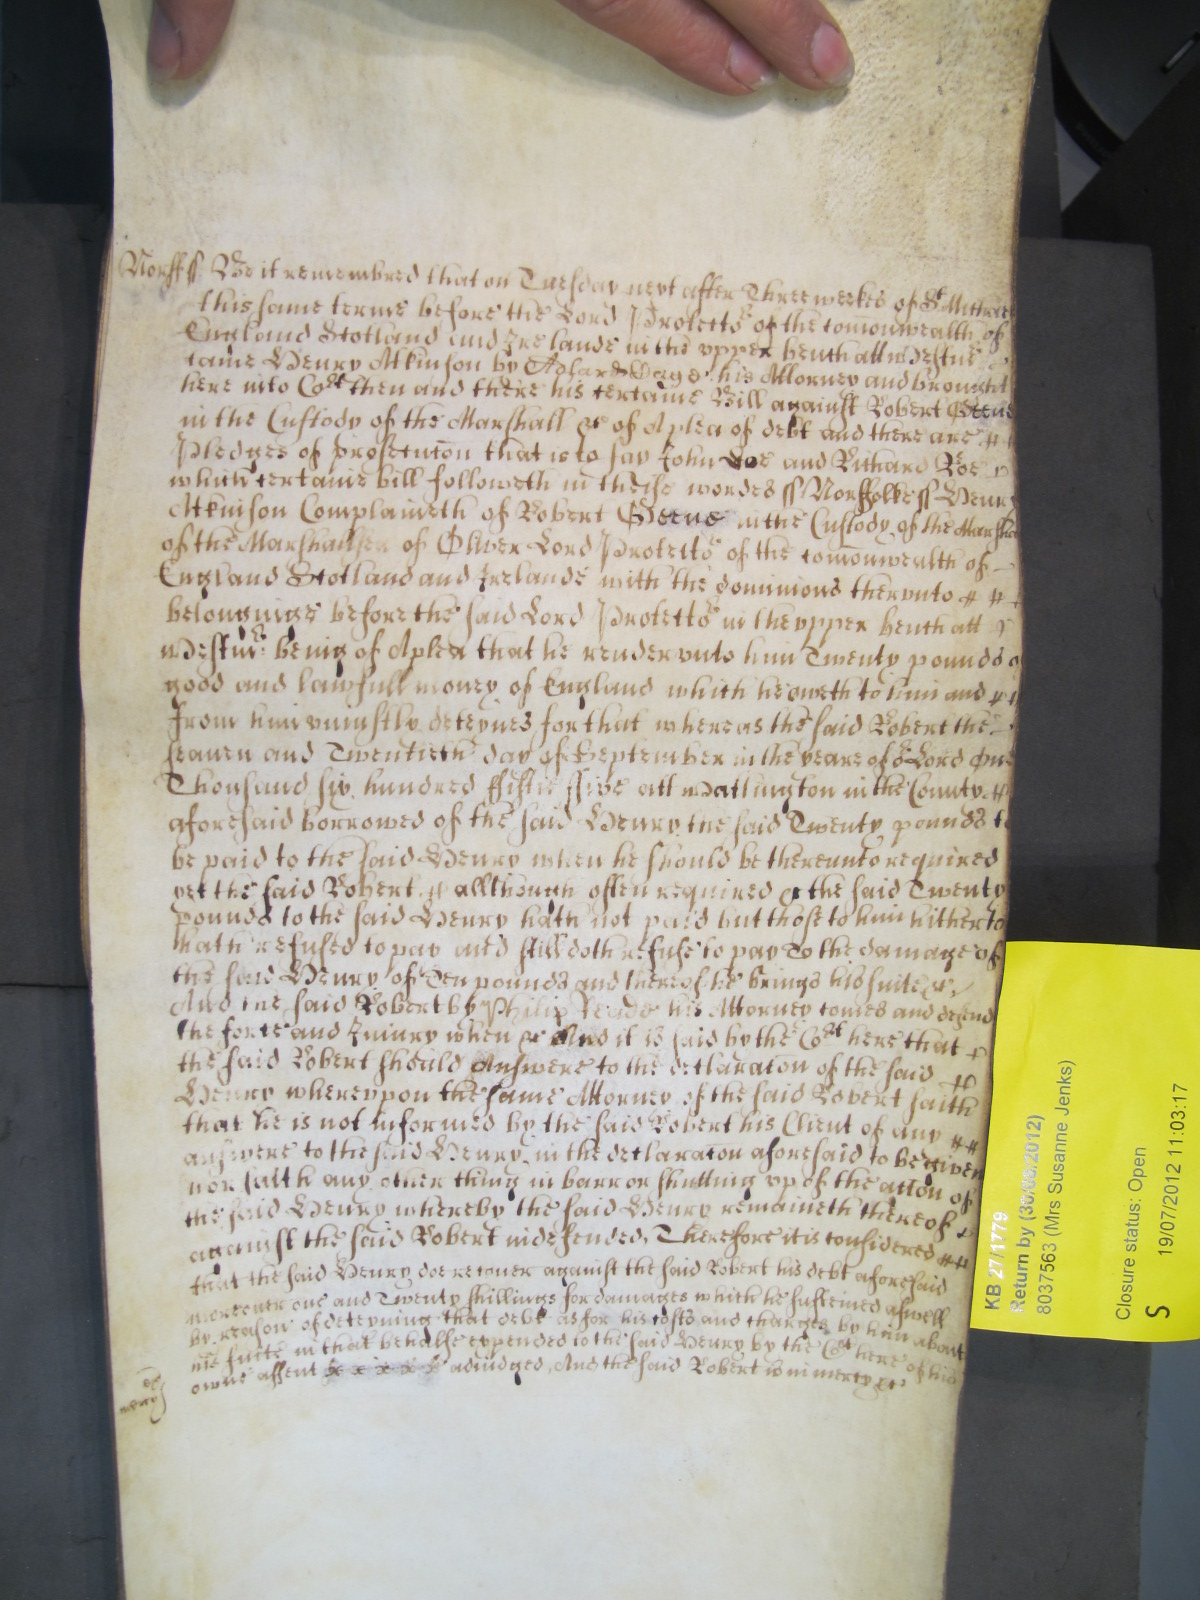 Norff ss Be it remembred that on Tuesday next after Three weekes of St Michael
this same terme before the Lord Protector of the comonwealth of
England Scotland and Irelande in the vpper bench att Westmr
came Henry Atkinson by his Attorney and brought
here into Cort then and there his certaine Bill against Robert
in the Custody of the Marshall &c of A plea of debt and there are
Pledges of prosecucon that is to say John Doe and Richard Roe
which certaine bill followeth in theise wordes ss Norffolke ss Henry
Atkinson Complaineth of Robert in the Custody of the Marshall
of the Marshalsea of Oliver Lord Protector of the comonwealth of
England Scotland and Irelande with the dominions thervnto
belonginge before the said Lord Protector in the vpper bench att
Westmr being of A plea that he render vnto him Twenty pounds of
good and lawfull money of England which he oweth to him and
from him vniustly deteynes for that whereas the said Robert the
seauen and Twentieth day of September in the yeare of or Lord One
Thousand six hundred ffiftie ffive att Watlington in the County
aforesaid borrowed of the said Henry the said Twenty pounds to
be paid to the said Henry when he should be therevnto required
yet the said Robert allthough often required the said Twenty
pounds to the said Henry hath not paid but those to him hitherto
hath refused to pay and still doth refuse to pay To the damage of
the said Henry of Ten pounds and thereof he brings his suite &c
And the said Robert by Philip his Attorney comes and defend
the force and Iniury when &c And it is said by the Cort here that
the said Robert should Answere to the declaracon of the said
Henry wherevpon the same Attorney of the said Robert saith
that he is not informed by the said Robert his Client of any
answere to the said Henry in the declaracon aforesaid to be given
nor saith any other thing in barr or shutting vp of the accon of
the said Henry whereby the said Henry remaineth thereof
against the said Robert vndefended, Therefore it is considered
that the said Henry doe recouer against the said Robert his debt aforesaid
moreouer one and Twenty shillings for damages which he susteined aswell
by reason of deteyning that debt as for his costs and charges by him about
his suite in that behalfe expended to the said Henry by the Cort here of his
owne assent adiudged, And the said Robert is in mercy &c
mercy
KB 27/1779
Return by (30/08/2012)
8037563 (Mrs Susanne Jenks)
Closure status: Open
S 19/07/2012 11:03:17